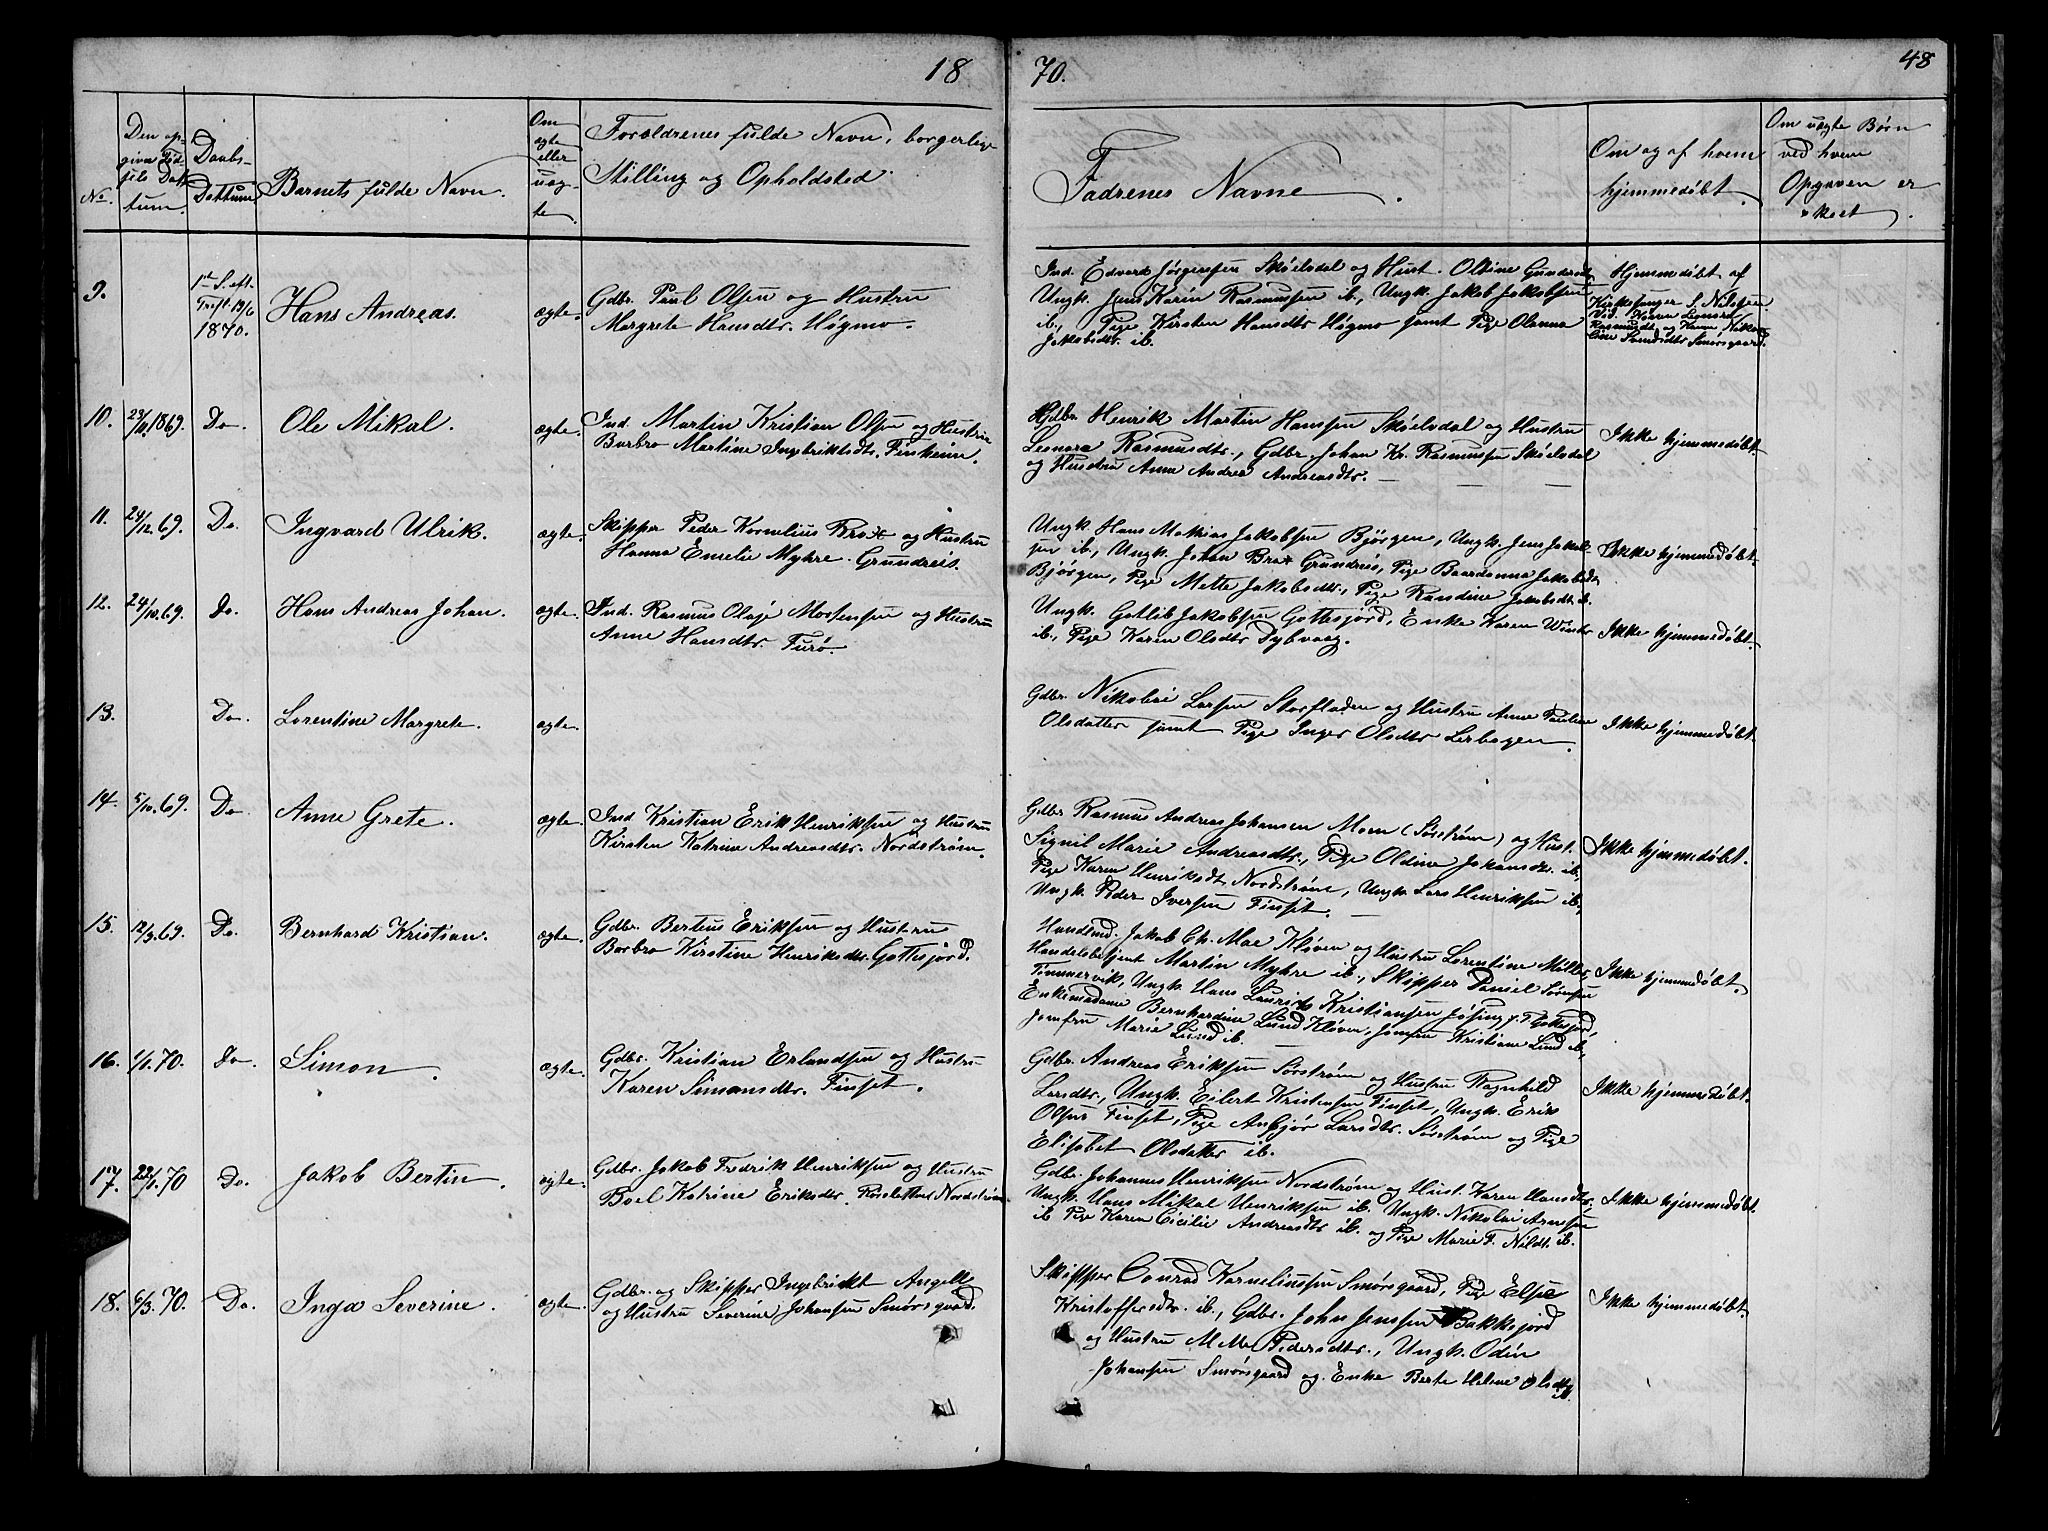 18 70. 48
No. Den opgivne Fødsels Dattum. Daabs-Dattum Barnets fulde Navn. Om ægte eller uægte. Forældrenes fulde Navn, borgerlige Stilling og Opholdsted. Fadrenes Navne. Om og af hvem hjemmedøbt. Om uægte Børn ved hvem Opgaven er skeet.
9. 1ste S. eft. Tref. 19/6 1870. Hans Andreas. ægte.
Gdbr. Paul Olsen og Hustru
Margrete Hansdtr. Høgmo.
Ind. Edvard Jørgensen Skøelvdal og Hust. Oldine Gundersd.
Ungk. Jens Karin Rasmussen ib., Ungk. Jakob Jakobsen
ib., Pige Kirsten Hansdtr Høgmo samt Pige Olanna
Jakobsdtr. ib.
Hjemmedøbt af
Kirkesanger S. Nilssen
Vid. Karen Leonora
Rasmusdt. og Karen Niko-
line Smørsgaard.
10. 23/10.1869. Do. Ole Mikal. ægte.
Ind. Martin Kristian Olsen og Hustru
Barbro Martine Ingebriktsdtr. Finhenn.
Gdbr. Henrik Martin Hanssen Skøelvdal og Hustru
Leonora Rasmusdtr., Gdbr. Johan Kr. Rasmussen Skøelvdal
og Hustru Anne Andrea Andreasdtr. — — —
Ikke hjemmedøbt.
11. 24/12.69. Do. Ingvard Ulrik. ægte.
Skipper Peder Kornelius Brox og Hustru
Hanna Emelie Myhre. Grundreis.
Ungk. Hans Mathias Jakobsen Bjørgen, Ungk. Jens Jakob-
sen ib., Ungk. Johan Brox Grundreis, Pige Baardanna Jakobsdtr
Bjørgen, Pige Mette Jakobsdtr., Pige Randine Jakobsdtr. ib.
Ikke hjemmedøbt.
12. 24/10.69. Do. Hans Andreas Johan. ægte.
Ind. Rasmus Olaje Mortensen og Hustru
Anne Hansdtr. Furø.
Ungk. Gotlib Jakobsen Gottesjord, Enke Karen Winter
ib., Pige Karen Olsdtr Dybvaag.
Ikke hjemmedøbt.
13. Do. Lorentine Margrete. ægte.
Gdbr. Nikolai Larsen Storfladen og Hustru Anne Pauline
Olsdatter samt Pige Inger Olsdtr Lerbogen.
Ikke hjemmedøbt.
14. 5/10.69. Do. Anne Grete. ægte.
Ind. Kristian Erik Henriksen og Hustru
Kirsten Katrine Andreasdtr. Nordstrøm.
Gdbr Rasmus Andreas Johansen Moen (Sørstrøm) og Hust.
Signil Marie Andreasdtr., Pige Oldine Johansdtr. ib.,
Pige Karen Henriksdt. Nordstrøm, Ungk. Lars Henriksen ib.,
Ungk. Peder Iversen Finset. —
Ikke hjemmedøbt.
15. 12/9.69. Do. Bernhard Kristian. ægte.
Gdbr. Berteus Eriksen og Hustru
Barbro Kirstine Henriksdtr. Gottesjord.
Handlsmd. Jakob Ch. Moe Kløven og Hustru Lorentine Müller,
Handelsbetjent Martin Myhre ib., Skipper Daniel Sørensen
Tømmervik, Ungk. Hans Laurids Kristiansen Jøsing p.t. Gottesjord,
Enkemadame Bernhardine Lund Kløven, Jomfru Kristiane Lund ib.,
Jomfru Marie Lund ib. —
Ikke hjemmedøbt.
16. 1/1.70. Do. Simon. ægte.
Gdbr. Kristian Erlandsen og Hustru
Karen Simonsdtr. Finset.
Gdbr. Andreas Eriksen Sørstrøm og Hustru Ragnhild
Larsdtr., Ungk. Eilert Kristensen Finset, Ungk. Erik
Olsen Finset, Pige Anbjør Larsdtr. Sørstrøm og Pige
Elisabet Olsdatter ib.
Ikke hjemmedøbt.
17. 22/1.70 Do. Jakob Bertin. ægte.
Gdbr. Jakob Fredrik Henriksen og Hustru
Boel Katrine Eriksdtr. Nordstrøm
Gdbr. Johannes Henriksen Nordstrøm og Hust. Karen Hansdtr.,
Ungk. Hans Mikal Henriksen ib. Ungk. Nikolai Arnesen
ib. Pige Karen Cicilie Andreasdtr ib. og Pige Marie F. Nilsdt. ib.
Ikke hjemmedøbt.
18. 6/3.70. Do. Inga Severine. ægte.
Gdbr. og Skipper Ingebrikt Angell
og Hustru Severine Johansen Smørsgaard.
Skipper Conrad Korneliussen Smørsgaard, Pige Elsie
Kristoffersdtr. ib., Gdbr. John Jenssen Bakkejord
og Hustru Mette Pedersdtr., Ungk. Odin
Johansen Smørsgaard og Enke Berte Helene Olsdtr
Ikke hjemmedøbt.